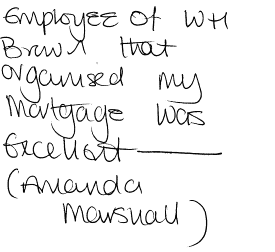 Employee Of WH
Brown that
organised my
Mortgage was
Excellent
(Amanda
Marshall)